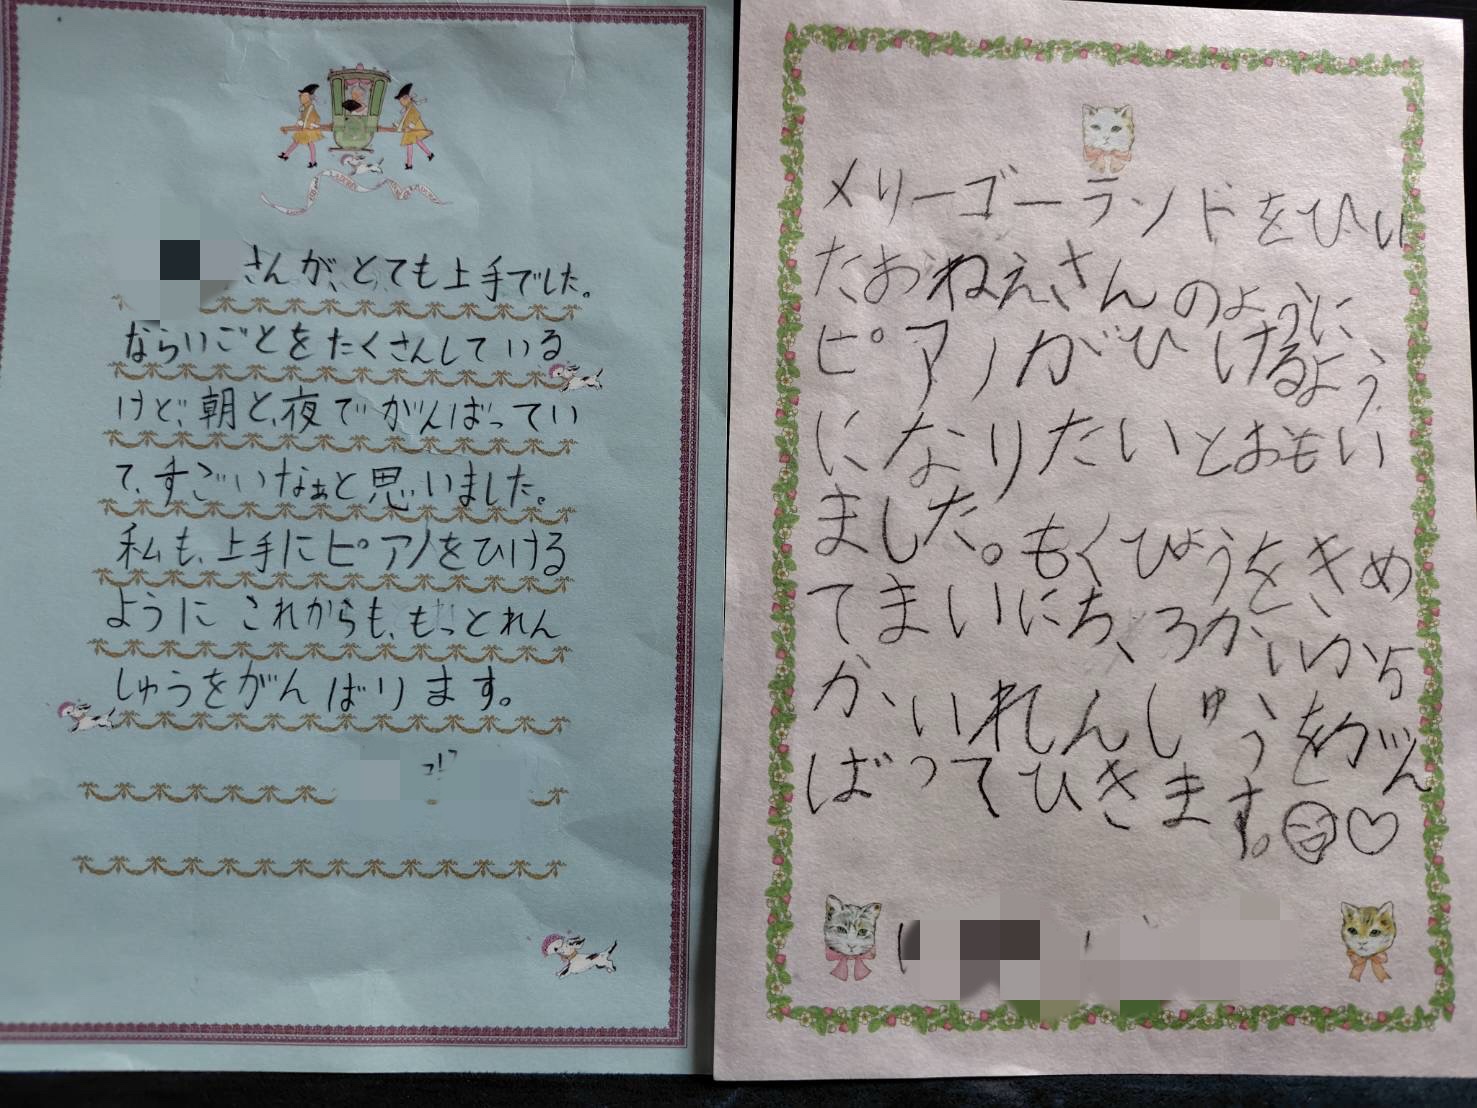 さんが、とても上手でした。
ならいごとをたくさんしている
けど、朝と、夜でがんばってい
て、すごいなぁと思いました。
私も、上手にピアノをひける
ようにこれからも、もっとれん
しゅうをがんばります。
メリーゴーランドをひい
たおねえさんのように
ピアノがひけるよう
になりたいとおもい
ました。もくひょうをきめ
てまいにち、3かいから5
かいれんしゅうをがん
ばってひきます。